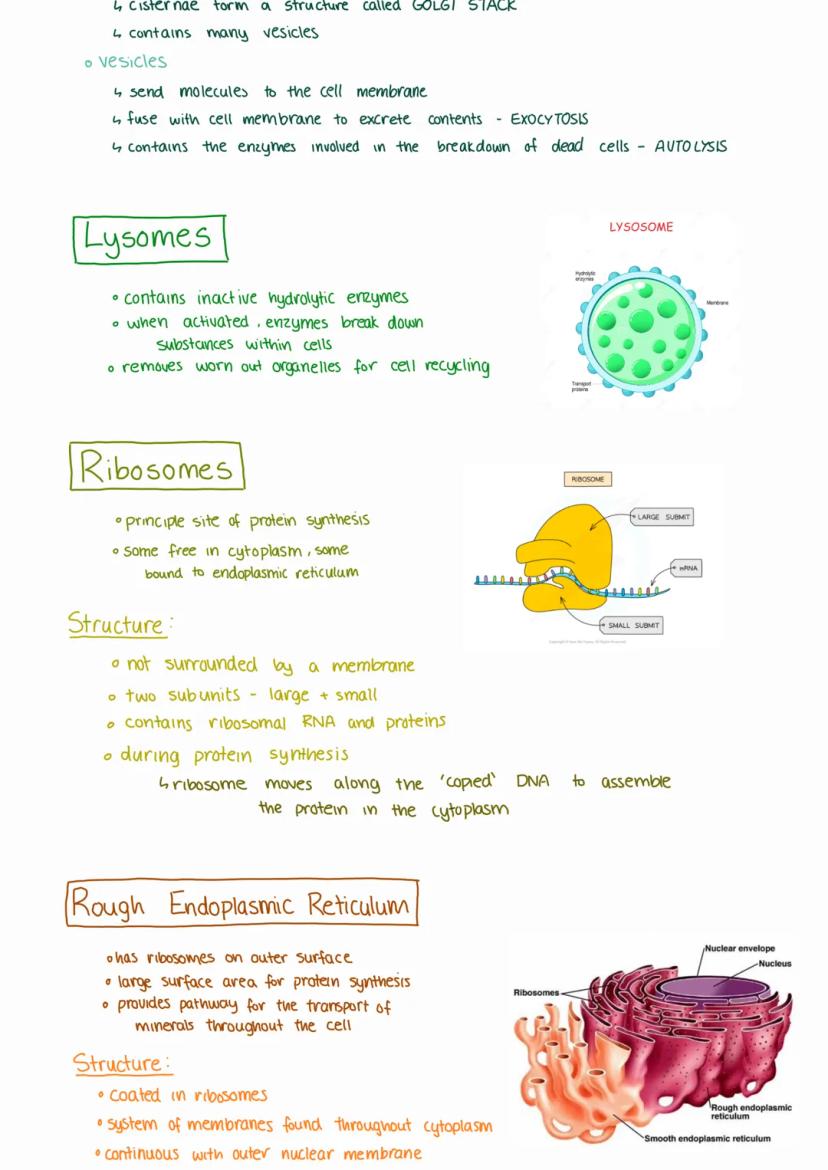 ↳ cisternae form a structure called GOLGI STACK
↳ contains many vesicles
vesicles
↳ send molecules to the cell membrane
↳ fuse with cell membrane to excrete contents - EXOCYTOSIS
↳ contains the enzymes involved in the breakdown of dead cells - AUTOLYSIS
Lysomes
LYSOSOME
Hydrolytic
enzymes
Membrane
Transport
proteins
• contains inactive hydrolytic enzymes
• when activated, enzymes break down
substances within cells
• removes worn out organelles for cell recycling
Ribosomes
RIBOSOME
LARGE SUBMIT
mRNA
SMALL SUBMIT
• principle site of protein synthesis
• some free in cytoplasm, some
bound to endoplasmic reticulum
Structure:
• not surrounded by a membrane
• two subunits - large + small
• contains ribosomal RNA and proteins
• during protein synthesis
↳ ribosome moves along the 'copied' DNA to assemble
the protein in the cytoplasm
Rough Endoplasmic Reticulum
• has ribosomes on outer surface
• large surface area for protein synthesis
• provides pathway for the transport of
minerals throughout the cell
Nuclear envelope
Nucleus
Ribosomes
Rough endoplasmic
reticulum
Smooth endoplasmic reticulum
Structure:
• coated in ribosomes
• system of membranes found throughout cytoplasm
• continuous with outer nuclear membrane